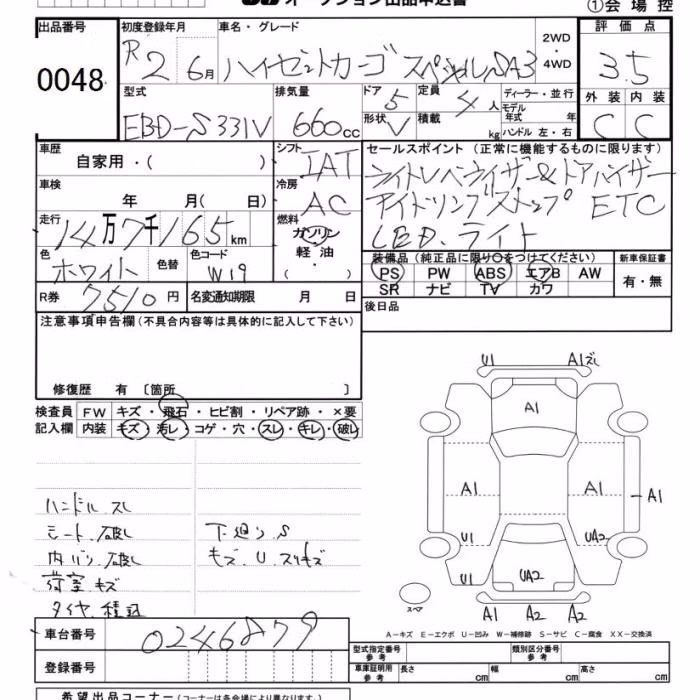 オークション出品申込書
①会場控
出品番号 初度登録年月 車名・グレード 評価点
0048
R2 6月 ハイゼットカーゴ スペシャルSA3 2WD・4WD 3.5
型式 排気量 ドア 5 定員 4人 ディーラー・並行 外装 内装
EBD-S331V 660cc 形状 V 積載 kg モデル年式 年 ハンドル 左・右 C C
車歴 シフト セールスポイント(正常に機能するものに限ります)
自家用・( ) IAT ライトレベライザー&ドアバイザー
車検 冷房 アイドリングストップ ETC
年 月( 日) AC LED.ライト
走行 燃料
14万7千165km ガソリン
軽油
( ・ )
色 色替 色コード 装備品(純正品に限り○をつけてください) 新車保証書
ホワイト W19 PS PW ABS エアB AW 有・無
SR ナビ TV カワ
R券 7510円 名変通知期限 月 日 後日品
注意事項申告欄(不具合内容等は具体的に記入して下さい)
修復歴 有 〔箇所 〕
検査員 FW キズ・飛石・ヒビ割・リペア跡・×要
記入欄 内装 キズ・汚レ・コゲ・穴・スレ・キレ・破レ
U1 A1ズレ
A1
A1 A1 A1
U1 UA2
U1 UA2
スペア
A1 A2 A2
ハンドル スレ
シート.破レ 下廻り.S
内バリ.破レ キズ.U.スリキズ
荷室.キズ
タイヤ.積込
A-キズ E-エクボ U-凹み W-補修跡 S-サビ C-腐食 XX-交換済
車台番号 0246879
登録番号
型式指定番号 参考 類別区分番号 参考
車庫証明用 参考 長さ cm 幅 cm 高さ cm
希望出品コーナー(コーナーは各会場により異なります。)